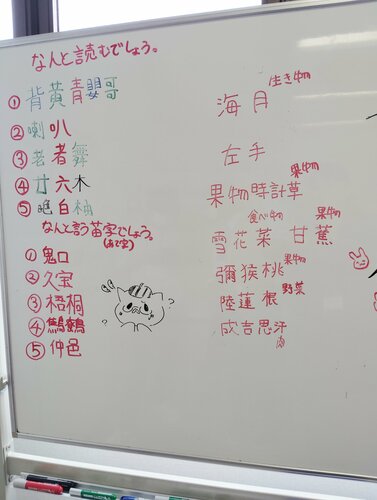 なんと読むでしょう。
①背黄青鸚哥
②喇叭
③老者舞
④廿六木
⑤晩白柚
なんと言う苗字でしょう。
(あて字)
①鬼口
②久宝
③梧桐
④鷦鶴
⑤仲邑
生き物
海月
左手
果物
果物時計草
食べ物 果物
雪花菜 甘蕉
果物
彌猴桃
野菜
陸蓮根
成吉思汗
肉